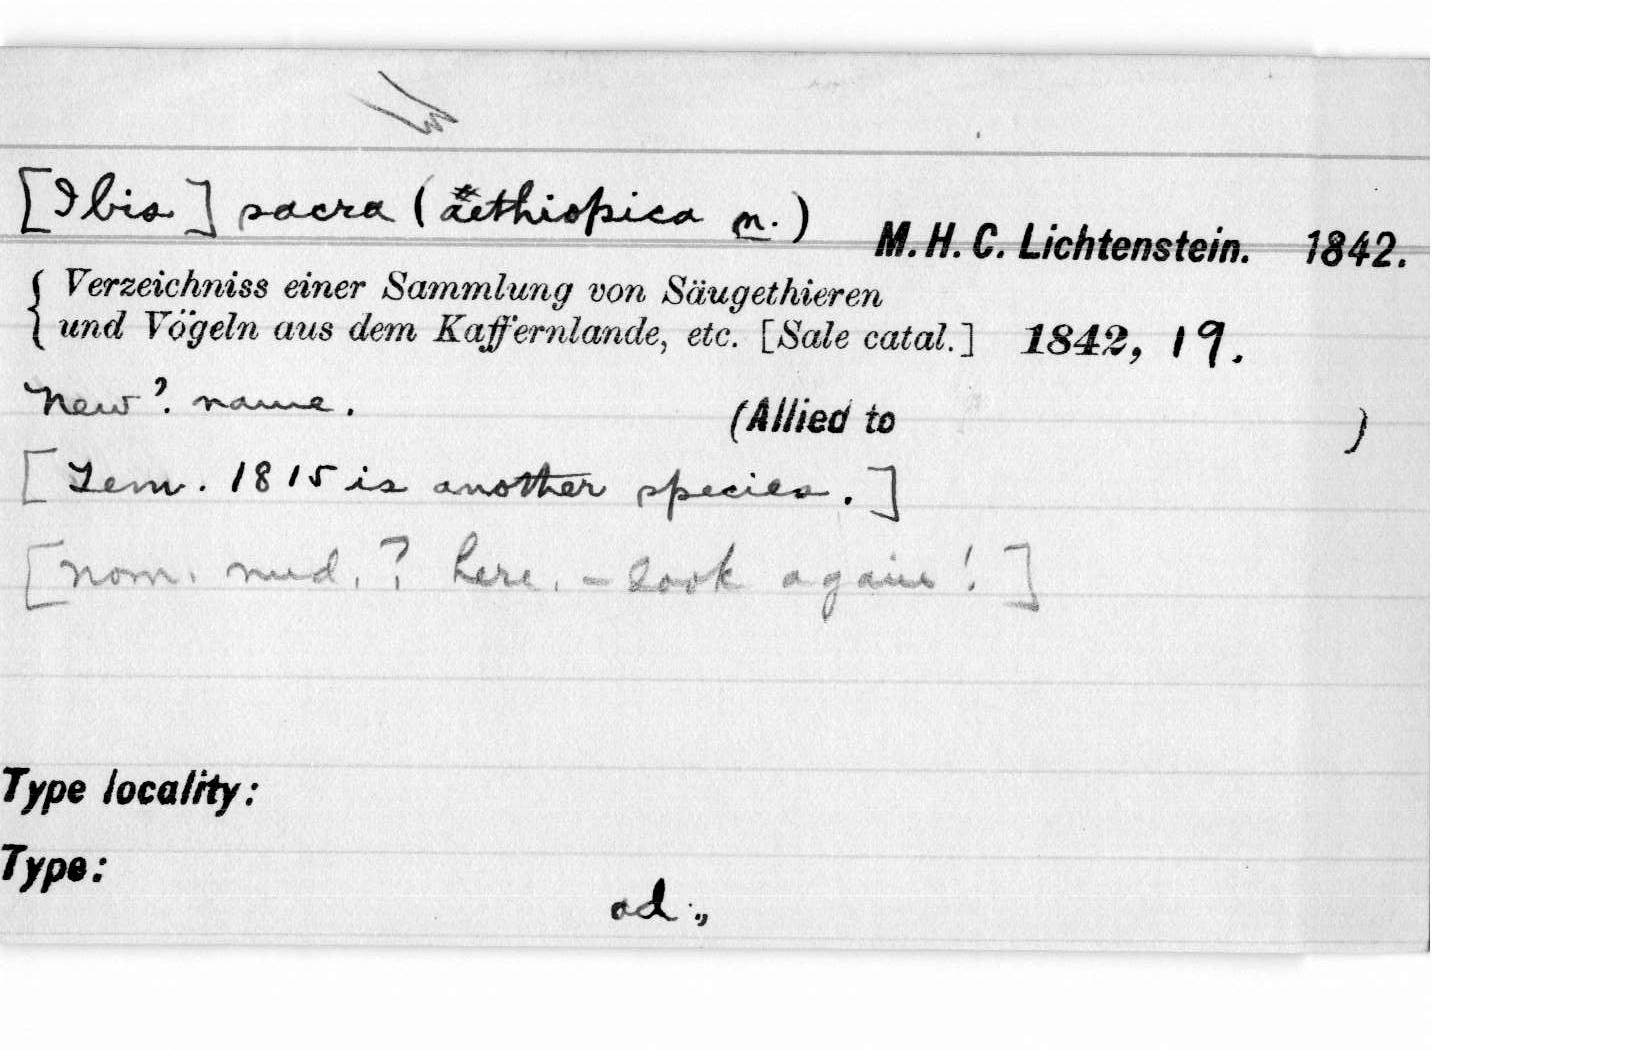 [Ibis] sacra (aethiopica n.)
M. H. C. Lichtenstein. 1842.
{ Verzeichniss einer Sammlung von Säugethieren
und Vögeln aus dem Kaffernlande, etc. [Sale catal.] 1842, 19.
New? name.
(Allied to )
[Tem. 1815 is another species.]
[nom. nud.? here. – look again!]
Type locality:
Type:
ad.,